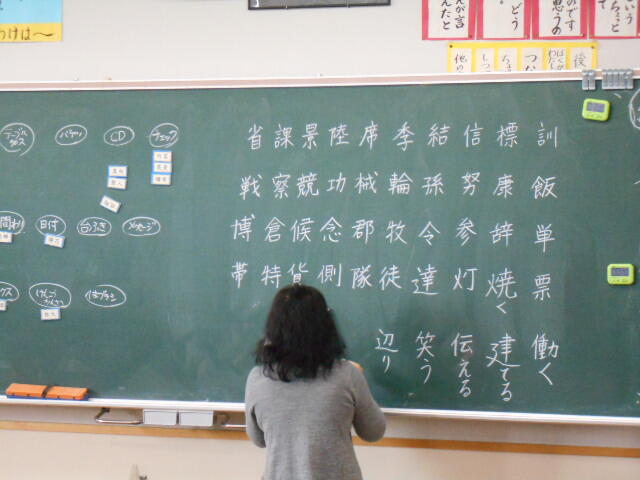 訓飯単票働く
標康辞焼く建てる
信努参灯伝える
結孫令達笑う
季輪牧徒辺り
席械郡隊
陸功念側
景競候貨
課察倉特
省戦博帯
チェック
CD
バケツ
メッセージ
台ふき
日付
はブラシ
のです
思うの
どう
が言
んだと
わけは〜